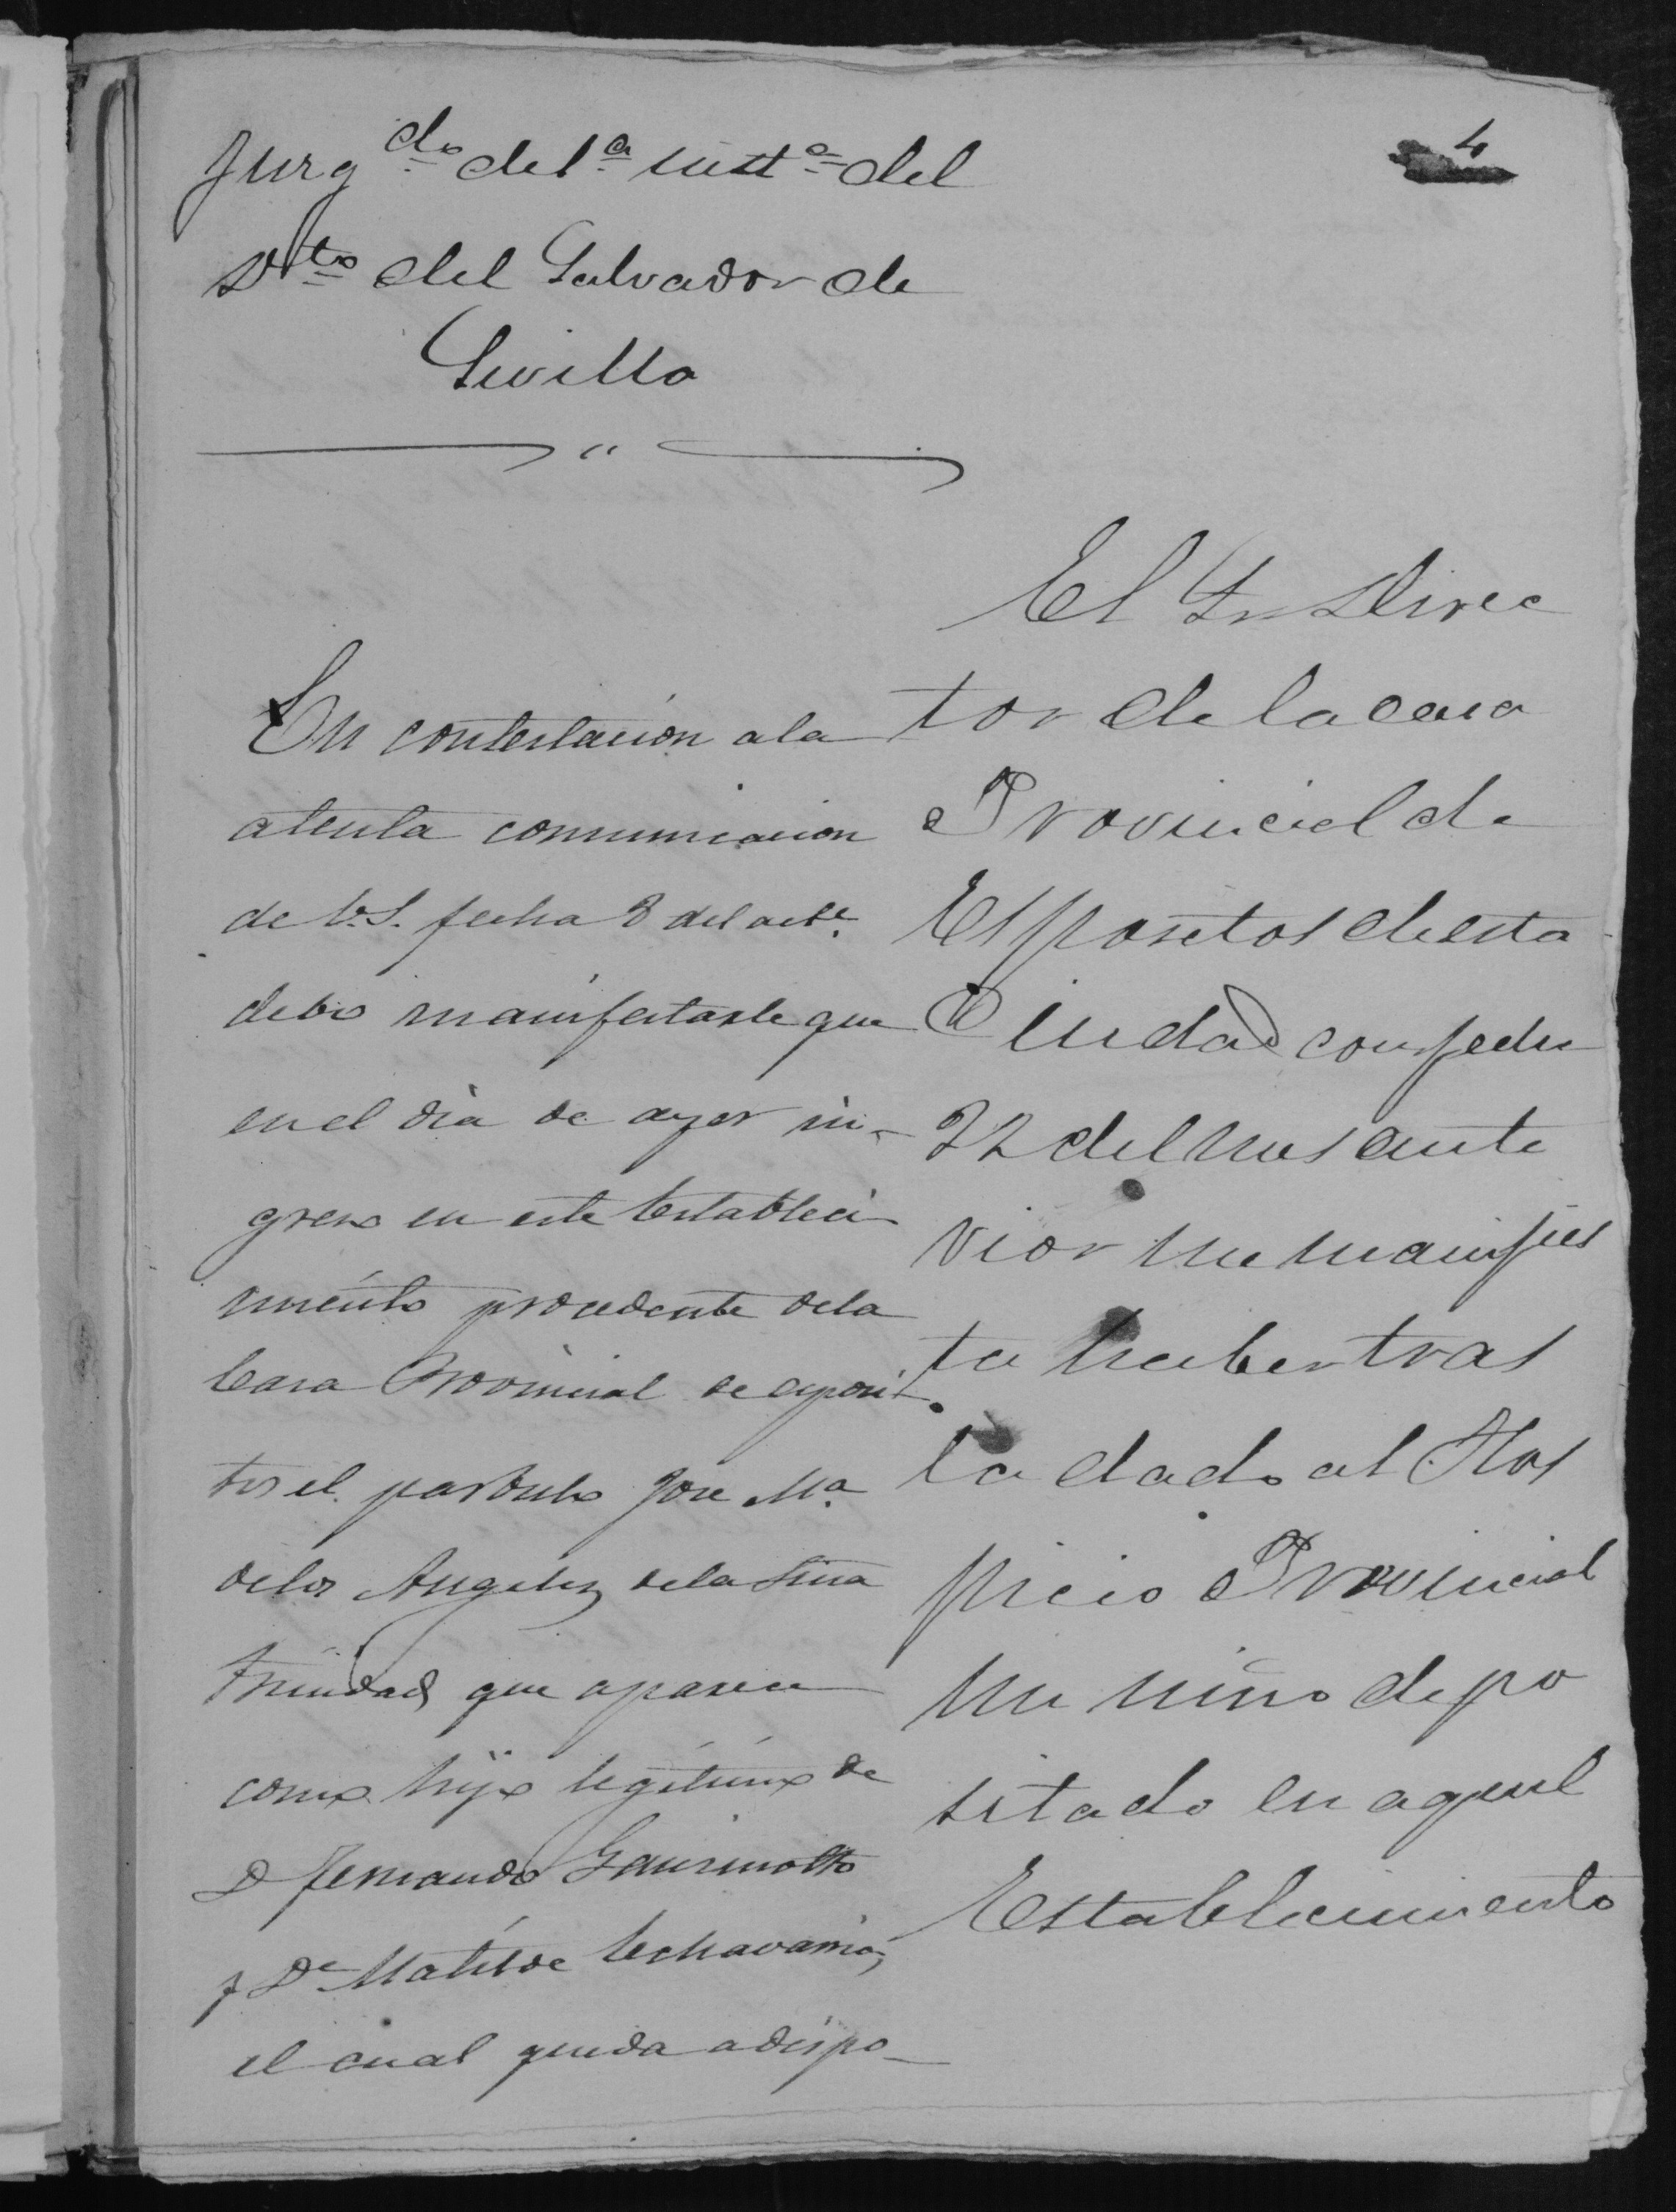 4
Juzg.do de 1.a inst.a del
Dto del Salvador de
Sevilla
El Sr Direc
tor de la casa
Provincial de
Espositos de esta
Ciudad con fecha
22 del mes ante
rior me manifies
ta haber tras
ladado al Hos
picio Provincial
un niño depo
sitado en aquel
Establecimiento
En contestación a la
atenta comunicacion
de V.S. fecha 8 del act.e
debo manifestarle que
en el dia de ayer in-
greso en este Estableci
miento procedente de la
Casa Provincial de esposi
tos el parbulo Jose M.a
de los Angeles de la Sma
Trinidad que aparece
como hijo legitimo de
D Fernando
y D.a Matilde Echavarria,
el cual queda a dispo-